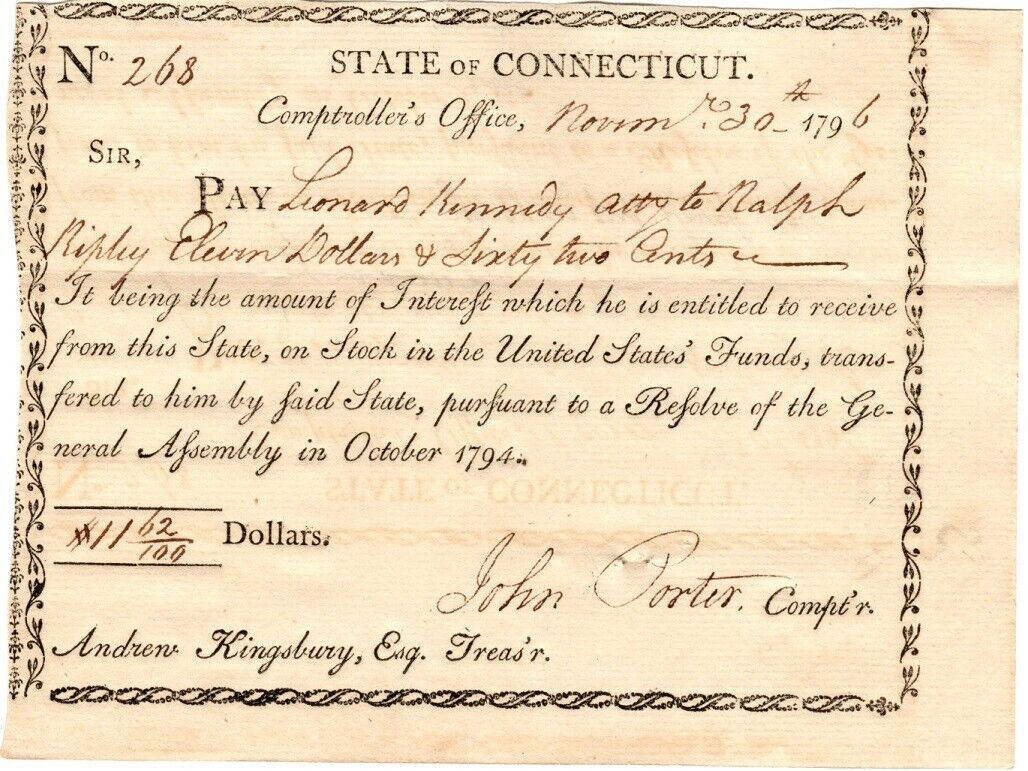 No. 268
STATE OF CONNECTICUT.
Comptroller's Office, Novemr. 30th 1796
SIR,
PAY Leonard Kennedy atty to Ralph
Ripley Eleven Dollars & Sixty two Cents
It being the amount of Intereſt which he is entitled to receive
from this State, on Stock in the United States' Funds, trans-
fered to him by ſaid State, purſuant to a Reſolve of the Ge-
neral Aſſembly in October 1794.
$11 62/100 Dollars.
John Porter. Compt'r.
Andrew Kingsbury, Esq. Treas'r.
STATE OF CONNECTICUT.